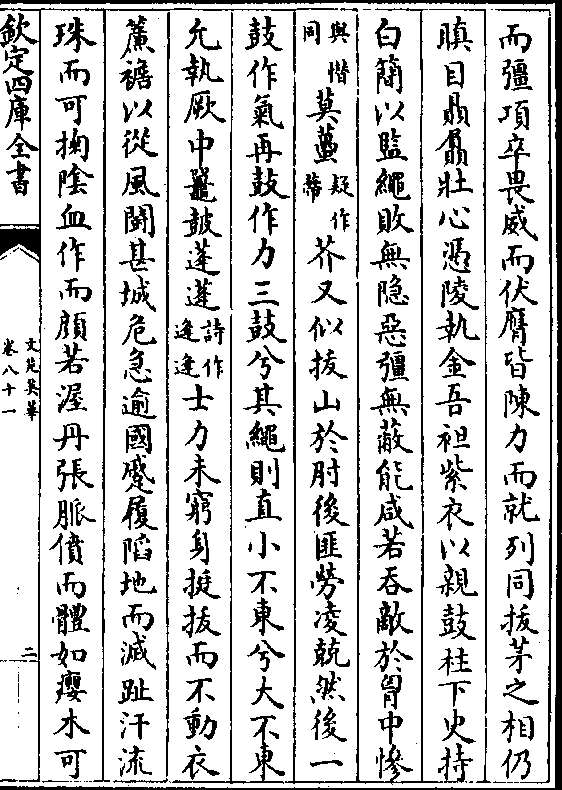 而彊項卒畏威而伏膺皆陳力而就列同拔茅之相仍
瞋目贔屭壯心憑陵執金吾袒紫衣以親鼓柱下史持
白簡以監繩敗無隐惡彊無蔽能咸若吞敵於胷中慘
與憯同莫蠆疑作蔕芥又似拔山於肘後匪勞凌兢然後一
鼓作氣再鼓作力三鼓兮其繩則直小不東兮大不東
允執厥中鼉鼓蓬蓬詩作逄逄士力未窮身挺拔而不動衣
簾襜以從風鬬甚城危急逾國蹙履陷地而滅趾汗流
珠而可掬陰血作而顔若渥丹張脈僨而體如癭木可
欽定四庫全書
文苑英華
卷八十一
二